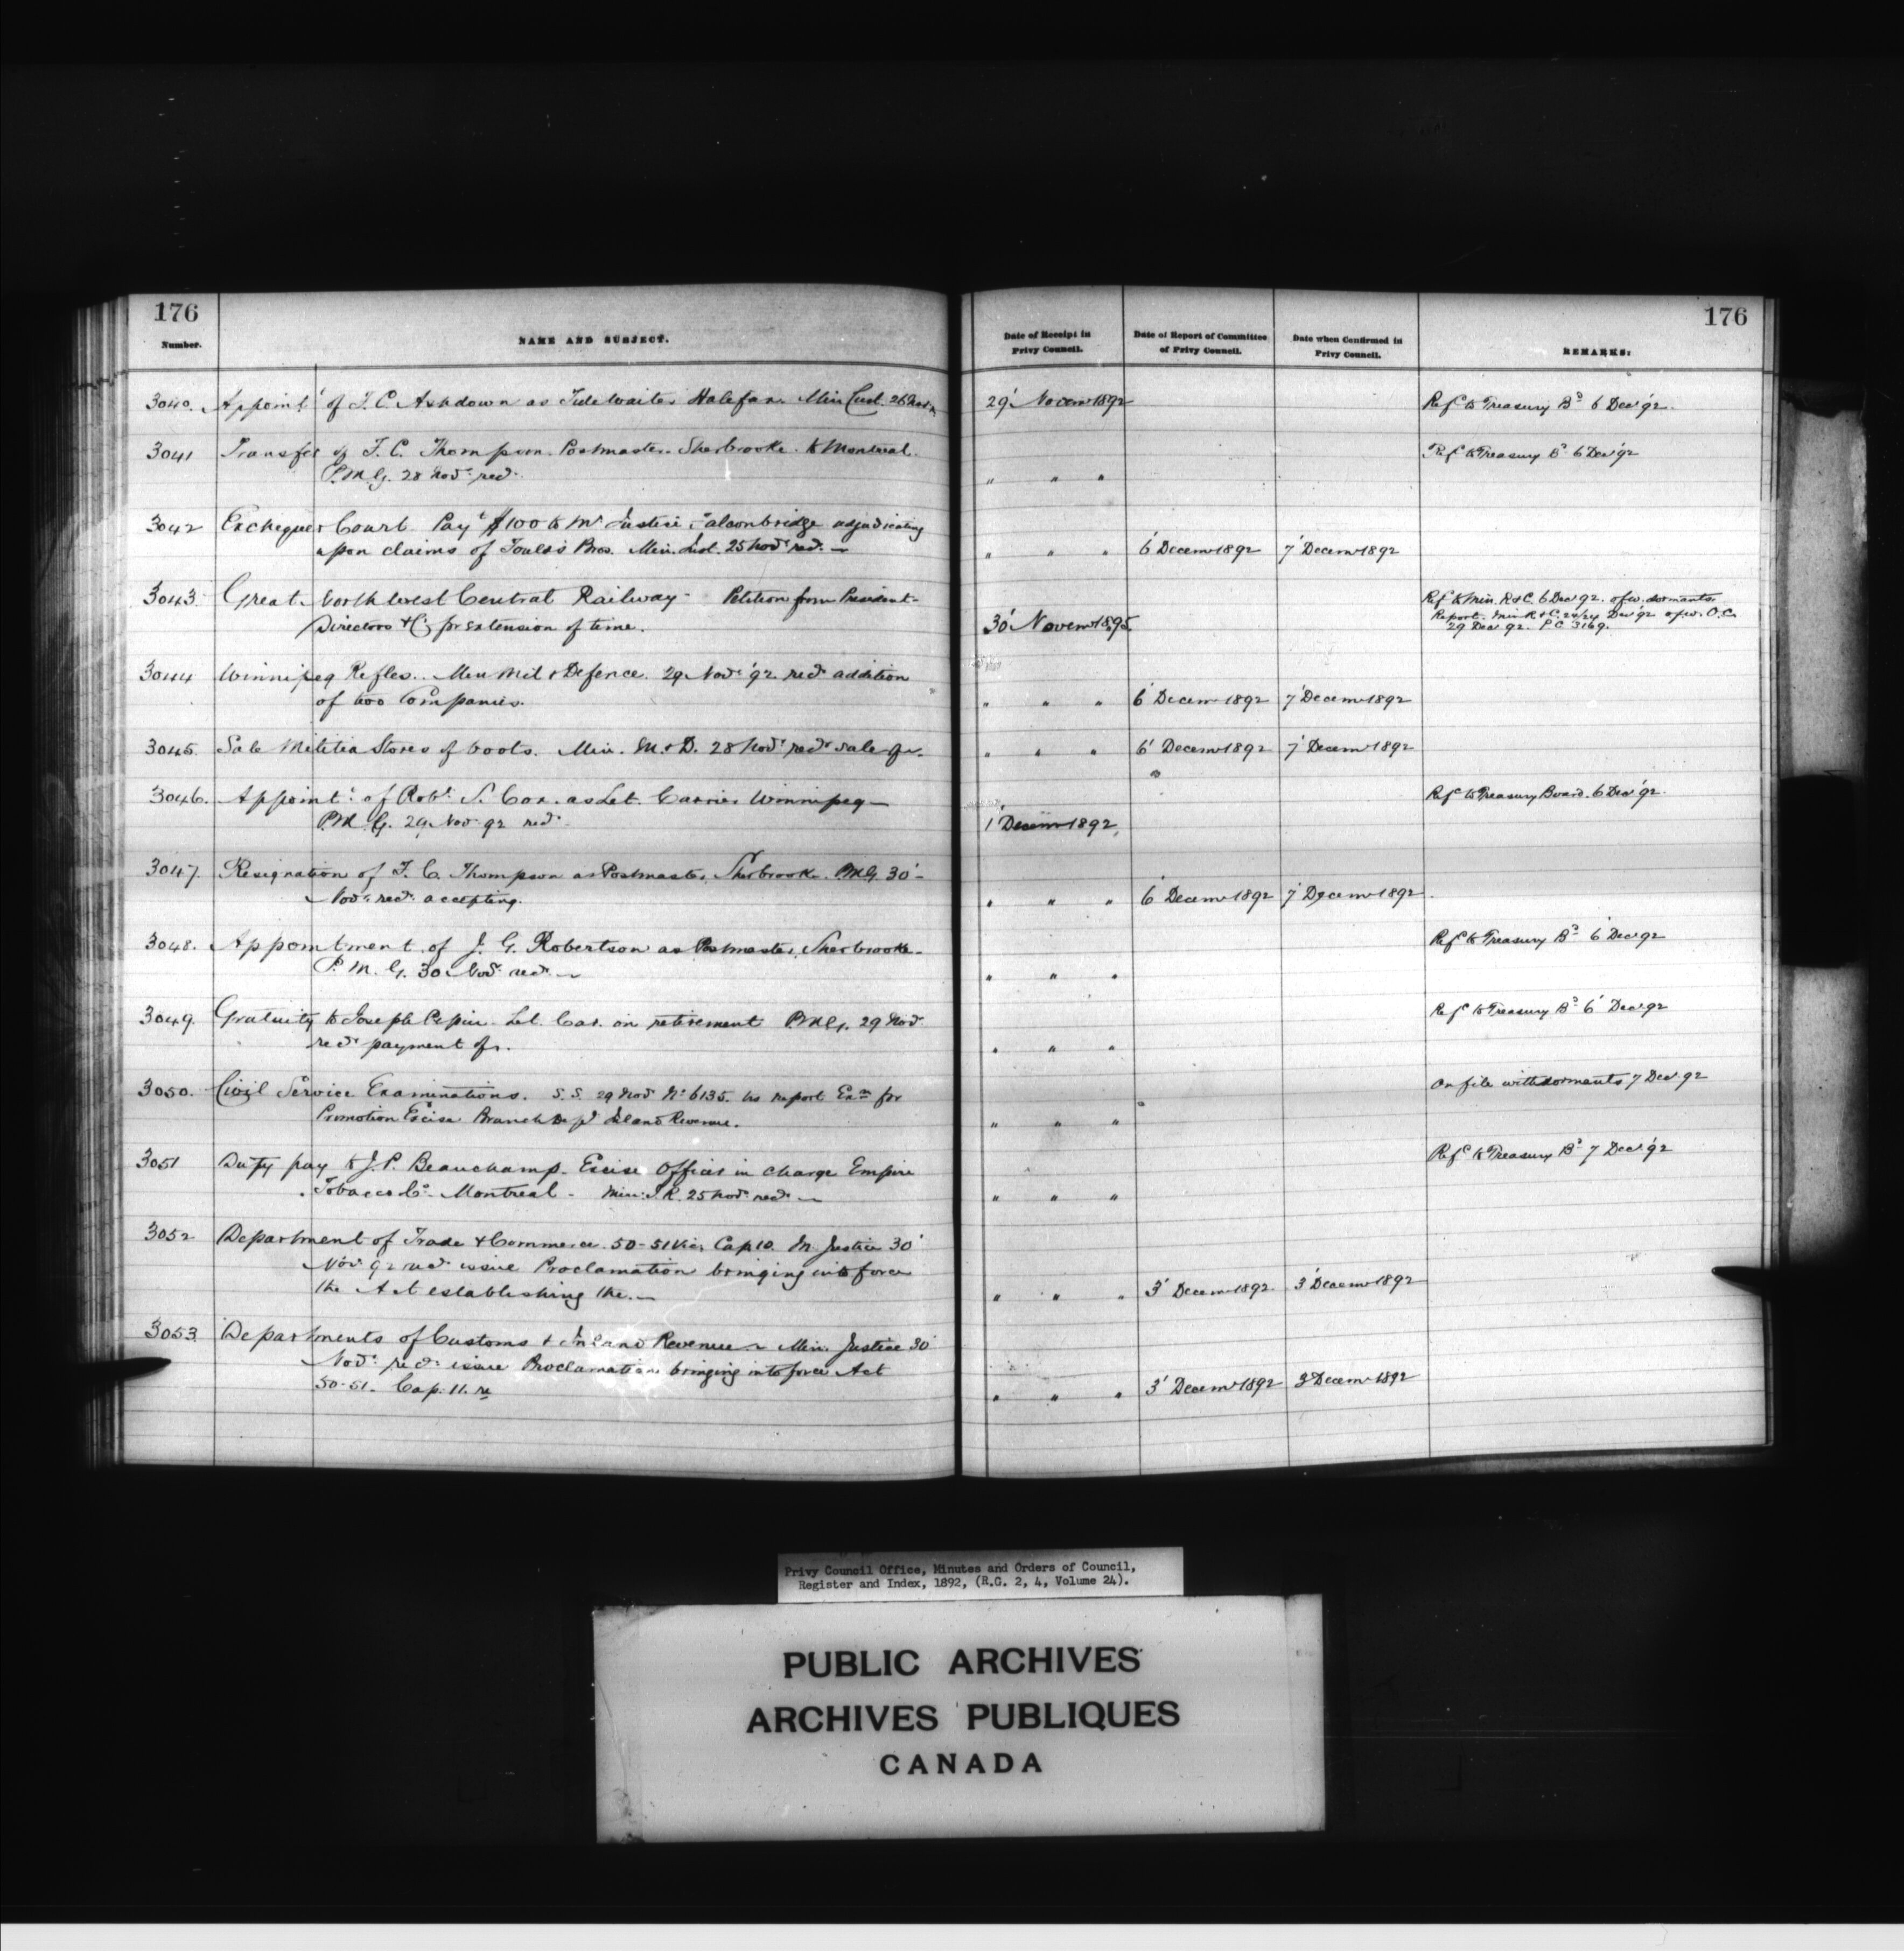 176
176
Number.
NAME AND SUBJECT.
Date of Receipt in
Privy Council.
Date of Report of Committee
of Privy Council.
Date when Confirmed in
Privy Council.
REMARKS:
3040. Appoint^t of T. C. Ashdown as Tide Waiter Halifax. Min Cust. 26 Nov
29' Novem 1892
Ref^d to Treasury B^d 6 Dec '92.
3041 Transfer of T. C. Thompson. Postmaster. Sherbrooke. to Montreal.
Ref^d to Treasury B^d 6 Dec '92
P.M.G. 28 Nov^r rec^d
" " "
3042 Exchequer Court. Pay^t $100 to M^r Justice Falconbridge adjudicating
upon claims of Bros. Min. Just. 25 Nov^r rec^d. —
" " " 6' Decem 1892 7' Decem 1892
3043. Great North West Central Railway - Petition from President
Ref^d to Min. R & C. 6 Dec 92. of w. dormants.
Directors &c for extension of time.
30' Novem 1895
Report. Min R & C. 22/24 Dec '92 of w. O.C.
29 Dec 92. P C 3169.
3044 Winnipeg Rifles. Min Mil & Defence. 29 Nov^r '92 rec^d addition
of two Companies.
" " " 6' Decem 1892 7' Decem 1892
3045. Sale Militia Stores of boots. Min. M. & D. 28 Nov^r rec^d sale of.
" " " 6' Decem 1892 7' Decem 1892
"
3046. Appoint^t of Rob^t S. Cox. as Let. Carrier Winnipeg —
Ref^d to Treasury Board. 6 Dec '92.
P.M.G. 29 Nov 92 rec^d
1' Decem 1892
3047. Resignation of T. C. Thompson as Postmaster, Sherbrooke. P.M.G. 30' -
Nov^r rec^d accepting.
" " " 6' Decem 1892 7' Decem 1892
3048. Appointment of J. G. Robertson as Postmaster, Sherbrooke.
Ref^d to Treasury B^d 6' Dec 92
P. M. G. 30 Nov^r rec^d —
" " "
3049. Gratuity to Joseph Pepin Let. Car. on retirement P.M.G. 29 Nov
Ref^d to Treasury B^d 6' Dec 92
rec^d payment of.
" " "
3050. Civil Service Examinations. S.S. 29 Nov N^o 6135. report Ex^m for
On file with dormants 7 Dec 92
Promotion Excise Branch Dep^t Inland Revenue.
" " "
3051 Duty pay to J. P. Beauchamp. Excise Officer in charge Empire
Ref^d to Treasury B^d 7 Dec '92
Tobacco C^o Montreal - Min: I.R. 25 Nov^r rec^d —
" " "
3052 Department of Trade & Commerce. 50-51 Vic, Cap 10. M. Justice 30'
Nov^r 92 rec^d issue Proclamation bringing into force
the Act establishing the. —
" " " 3' Decem 1892 3' Decem 1892
3053 Departments of Customs & Inland Revenue Min. Justice 30
Nov^r rec^d issue Proclamation bringing into force Act
50-51. Cap. 11. re
" " " 3' Decem 1892 3 Decem 1892
Privy Council Office, Minutes and Orders of Council,
Register and Index, 1892, (R.G. 2, 4, Volume 24).
PUBLIC ARCHIVES
ARCHIVES PUBLIQUES
CANADA